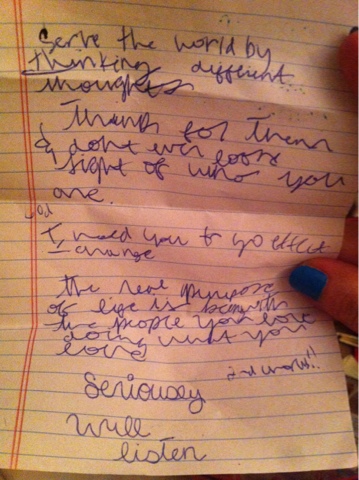 Serve the world by
thinking different
thoughts
Thanks for them
& dont ever loose
sight of who you
are.
I need you to go effect
change
the real purpose
of life is being with
the people you love
doing what you
love
Seriously
Will
listen